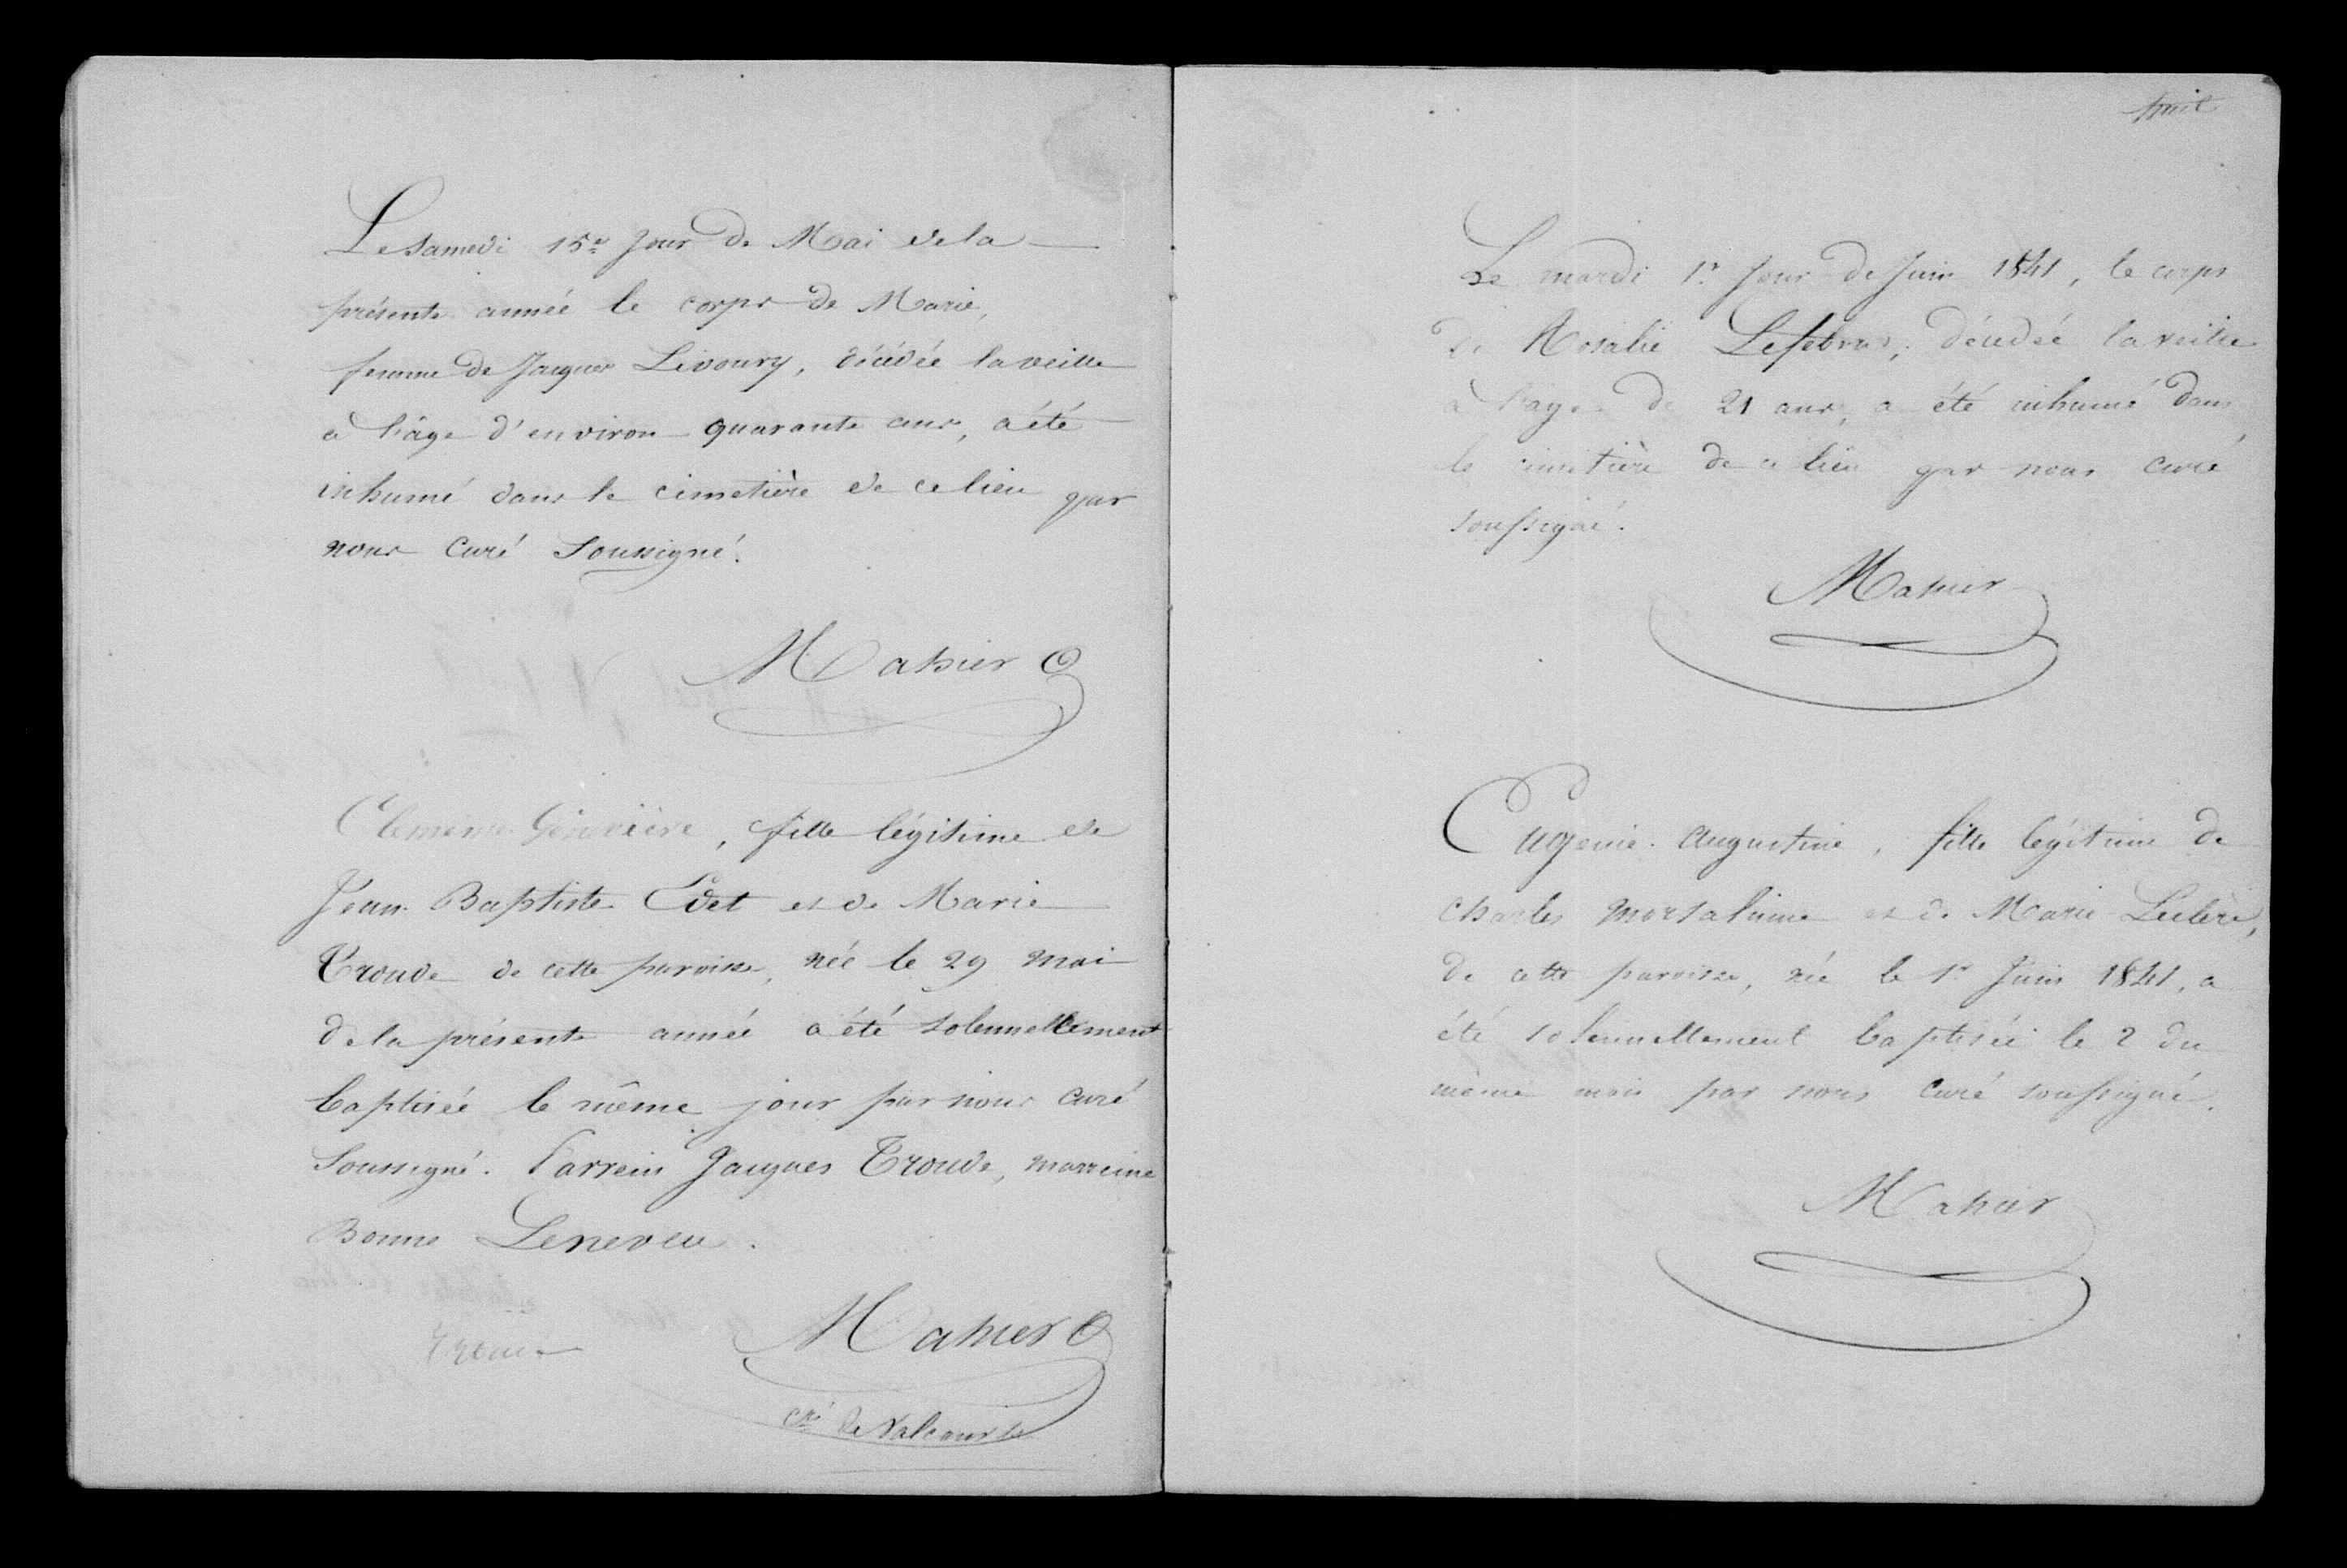 Le samedi 15e jour de Mai de la
présente année le corps de Marie,
femme de Jacques Livoury, décédée la veille
à l'âge d'environ quarante ans, a été
inhumé dans le cimetière de ce lieu par
nous Curé Soussigné.
Mahier
Clémence Généviève, fille légitime de
Jean Baptiste Edet et de Marie
Troude de cette paroisse, née le 29 mai
de la présente année a été solennellement
baptisée le même jour par nous curé
Soussigné. Parrein Jacques Troude, marreine
Bonne Leneveu.
Mahier
Troude
huit
Le mardi 1r Jour de Juin 1841, le corps
de Rosalie Lefebvre, décédée la veille
à l'age de 21 ans, a été inhumé dans
le cimetière de ce lieu par nous curé
soussigné.
Mahier
Eugenie Augustine, fille légitime de
Charles Morsalinne et de Marie Leclerc,
de cette paroisse, née le 1r Juin 1841, a
été solennellement baptisée le 2 du
même mois par nous Curé soussigné.
Mahier